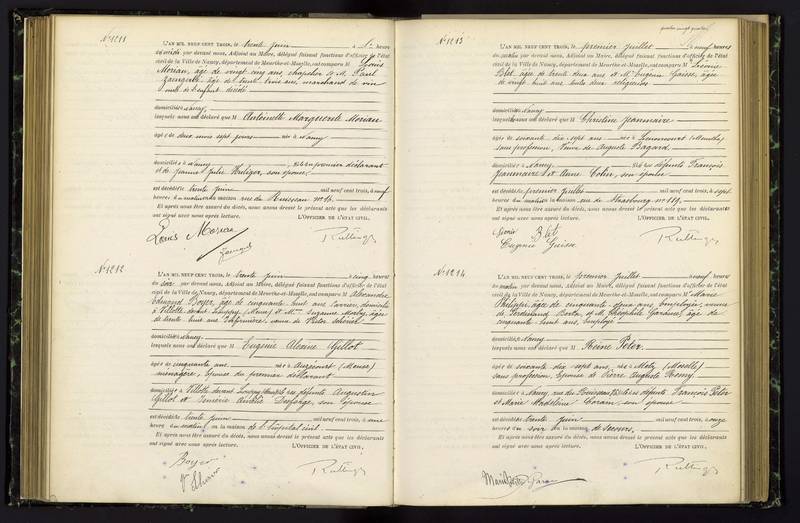 N° 1211
L'AN MIL NEUF CENT TROIS, le trente juin à heure
du par devant nous, Adjoint au Maire, délégué faisant fonctions d'officier de l'état
civil de la Ville de Nancy, département de Meurthe-et-Moselle, ont comparu M Louis
Morian, âgé de vingt cinq ans et M. Paul
âgé de trente trois ans, marchand de vin
de l'enfant décédé
domiciliés à Nancy,
lesquels nous ont déclaré que M Antoinette Marguerite Morian
âgée de deux mois sept jours née à Nancy
domiciliée à Nancy, fille du premier déclarant
et de Jeanne Julie son épouse
est décédée trente juin mil neuf cent trois, à neuf
heures du matin en la maison rue du Ruisseau n° 14.
Et après nous être assuré du décès, nous avons dressé le présent acte que les déclarants
ont signé avec nous après lecture. L'OFFICIER DE L'ÉTAT CIVIL,
Louis Morian
N° 1212
L'AN MIL NEUF CENT TROIS, le trente juin à cinq heures
du soir par devant nous, Adjoint au Maire, délégué faisant fonctions d'officier de l'état
civil de la Ville de Nancy, département de Meurthe-et-Moselle, ont comparu M Alexandre
Edmond Boyer, âgé de cinquante huit ans, carrier, domicilié
à Villotte devant Louppy (Meuse) et Mme Suzanne âgée
de trente huit ans, veuve de Victor
domiciliés à Nancy,
lesquels nous ont déclaré que M Eugénie Gillot
âgée de cinquante ans née à Auzécourt (Meuse)
ménagère, épouse du premier déclarant
domiciliée à Villotte devant Louppy fille des défunts Augustin
Gillot et son épouse
est décédée trente juin mil neuf cent trois, à une
heure du matin en la maison de l'hôpital civil.
Et après nous être assuré du décès, nous avons dressé le présent acte que les déclarants
ont signé avec nous après lecture. L'OFFICIER DE L'ÉTAT CIVIL,
Boyer
N° 1213
L'AN MIL NEUF CENT TROIS, le premier juillet à neuf heures
du matin par devant nous, Adjoint au Maire, délégué faisant fonctions d'officier de l'état
civil de la Ville de Nancy, département de Meurthe-et-Moselle, ont comparu M
âgée de trente deux ans et Mlle Eugénie Guisse, âgée
de vingt huit ans, toutes deux religieuses
domiciliés à Nancy
lesquels nous ont déclaré que M Christine Jeannaire
âgée de soixante dix sept ans née à
sans profession, Veuve de Auguste Bagard
domiciliée à Nancy, fille des défunts François
Jeannaire et Anne Colin, son épouse
est décédée premier juillet mil neuf cent trois, à sept
heures du matin en la maison rue de Strasbourg n° 119.
Et après nous être assuré du décès, nous avons dressé le présent acte que les déclarants
ont signé avec nous après lecture. L'OFFICIER DE L'ÉTAT CIVIL,
Eugénie Guisse
N° 1214
L'AN MIL NEUF CENT TROIS, le premier juillet à neuf heures
du matin par devant nous, Adjoint au Maire, délégué faisant fonctions d'officier de l'état
civil de la Ville de Nancy, département de Meurthe-et-Moselle, ont comparu M Marie
âgée de cinquante ans, employée, veuve
de Ferdinand et M. Théophile âgé de
cinquante huit ans, employé
domiciliés à Nancy
lesquels nous ont déclaré que M Reine Péter
âgée de soixante dix sept ans née à Metz (Moselle)
sans profession, épouse de Pierre Auguste Remy
domiciliée à Nancy, rue du Ruisseau fille des défunts François Péter
et Marie Madeleine son épouse
est décédée trente juin mil neuf cent trois, à onze
heures du soir en la maison de secours.
Et après nous être assuré du décès, nous avons dressé le présent acte que les déclarants
ont signé avec nous après lecture. L'OFFICIER DE L'ÉTAT CIVIL,